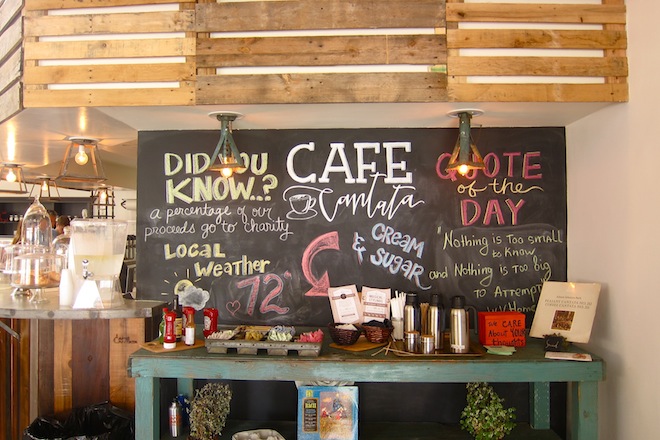 DID YOU
KNOW..?
a percentage of our
proceeds go to charity
LOCAL
Weather
72°
CAFE
Cantata
CREAM
&
SUGAR
QUOTE
of the
DAY
"Nothing is Too small
to Know
and Nothing is Too big
to Attempt"
WE CARE
About YOUR
thoughts